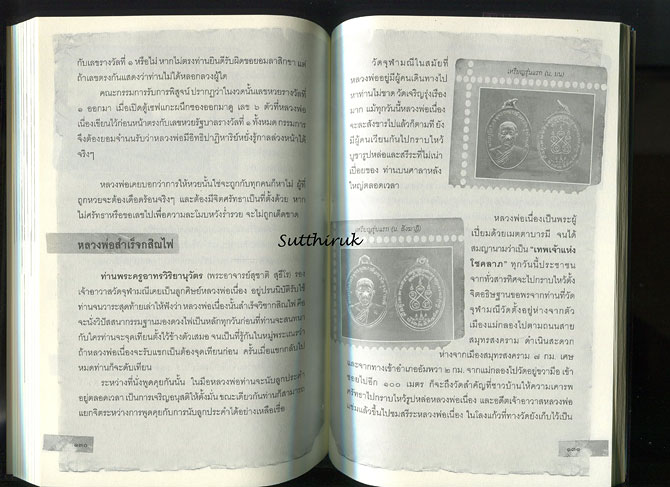 กับเลขรางวัลที่ ๑ หรือไม่ หากไม่ตรงท่านยินดีรับผิดขอยอมลาสิกขา แต่
ถ้าเลขตรงกันแสดงว่าท่านไม่ได้หลอกลวงผู้ใด
คณะกรรมการรับการพิสูจน์ ปรากฏว่าในงวดนั้นเลขหวยรางวัลที่
๑ ออกมา เมื่อเปิดตู้เซฟแกะผนึกซองออกมาดู เลข ๖ ตัวที่หลวงพ่อ
เนื่องเขียนไว้ก่อนหน้าตรงกับเลขหวยรัฐบาลรางวัลที่ ๑ ทั้งหมด กรรมการ
จึงต้องยอมจำนนรับว่าหลวงพ่อมีอิทธิปาฏิหาริย์หยั่งรู้กาลล่วงหน้าได้
จริงๆ
หลวงพ่อเคยบอกว่าการให้หวยนั้นใช่จะถูกกับทุกคนก็หาไม่ ผู้ที่
ถูกหวยจะต้องเดือดร้อนจริงๆ และต้องมีจิตศรัทธาเป็นที่ตั้งด้วย หาก
ไม่ศรัทธาหรือขอเลขไปเพื่อความละโมบหวังร่ำรวย จะไม่ถูกเด็ดขาด
หลวงพ่อสำเร็จกสิณไฟ
ท่านพระครูอาทรวิริยานุวัตร (พระอาจารย์สุชาติ สุธีโร) รอง
เจ้าอาวาสวัดจุฬามณีเคยเป็นลูกศิษย์หลวงพ่อเนื่อง อยู่ปรนนิบัติรับใช้
ท่านจนวาระสุดท้ายเล่าให้ฟังว่า หลวงพ่อเนื่องนั้นสำเร็จวิชากสิณไฟ คือ
จะนั่งวิปัสสนากรรมฐานมองดวงไฟเป็นหลักทุกวันก่อนที่ท่านจะสนทนา
กับใครท่านจะจุดเทียนตั้งไว้ข้างตัวเสมอ จนเป็นที่รู้กันในหมู่พระเณรว่า
ถ้าหลวงพ่อเนื่องจะรับแขกเป็นต้องจุดเทียนก่อน ครั้นเมื่อแขกกลับไป
หมดท่านก็จะดับเทียน
ระหว่างที่นั่งพูดคุยกันนั้น ในมือหลวงพ่อท่านจะนับลูกประคำ
อยู่ตลอดเวลา เป็นการเจริญอนุสติให้ตั้งมั่น ขณะเดียวกันท่านก็สามารถ
แยกจิตระหว่างการพูดคุยกับการนับลูกประคำได้อย่างเหลือเชื่อ
๑๓๐
Sutthiruk
วัดจุฬามณีในสมัยที่
หลวงพ่ออยู่มีผู้คนเดินทางไป
หาท่านไม่ขาด วัดเจริญรุ่งเรือง
มาก แม้ทุกวันนี้หลวงพ่อเนื่อง
จะละสังขารไปแล้วก็ตามที ยัง
มีผู้คนเวียนกันไปกราบไหว้
บูชารูปหล่อและสรีระที่ไม่เน่า
เปื่อยของ ท่านบนศาลาหลัง
ใหญ่ตลอดเวลา
เหรียญรุ่นแรก (น. บน)
เหรียญรุ่นแรก (น. ธังมาฏิ)
หลวงพ่อเนื่องเป็นพระผู้
เปี่ยมด้วยเมตตาบารมี จนได้
สมญานามว่าเป็น "เทพเจ้าแห่ง
โชคลาภ" ทุกวันนี้ประชาชน
จากทั่วสารทิศจะไปกราบไหว้ตั้ง
จิตอธิษฐานขอพรจากท่านที่วัด
จุฬามณีวัดตั้งอยู่ห่างจากตัว
เมืองแม่กลองไปตามถนนสาย
สมุทรสงคราม ดำเนินสะดวก
ห่างจากเมืองสมุทรสงคราม ๗ กม. เศษ
และจากทางเข้าอำเภออัมพวา ๒ กม. จากแม่กลองไปวัดอยู่ขวามือ เข้า
ซอยไปอีก ๑๐๐ เมตร ก็จะถึงวัดสำคัญที่ชาวบ้านให้ความเคารพ
ศรัทธาไปกราบไหว้รูปหล่อหลวงพ่อเนื่อง และอดีตเจ้าอาวาสหลวงพ่อ
แช่มแล้วขึ้นไปชมสรีระหลวงพ่อเนื่อง ในโลงแก้วที่ทางวัดยังเก็บไว้เป็น
๑๓๑